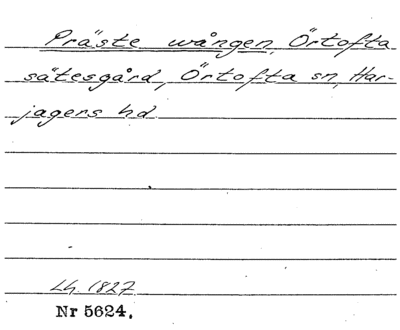 Präste wången, Örtofta
sätesgård, Örtofta sn, Har-
jagers hd
Lh. 1827
Nr 5624.